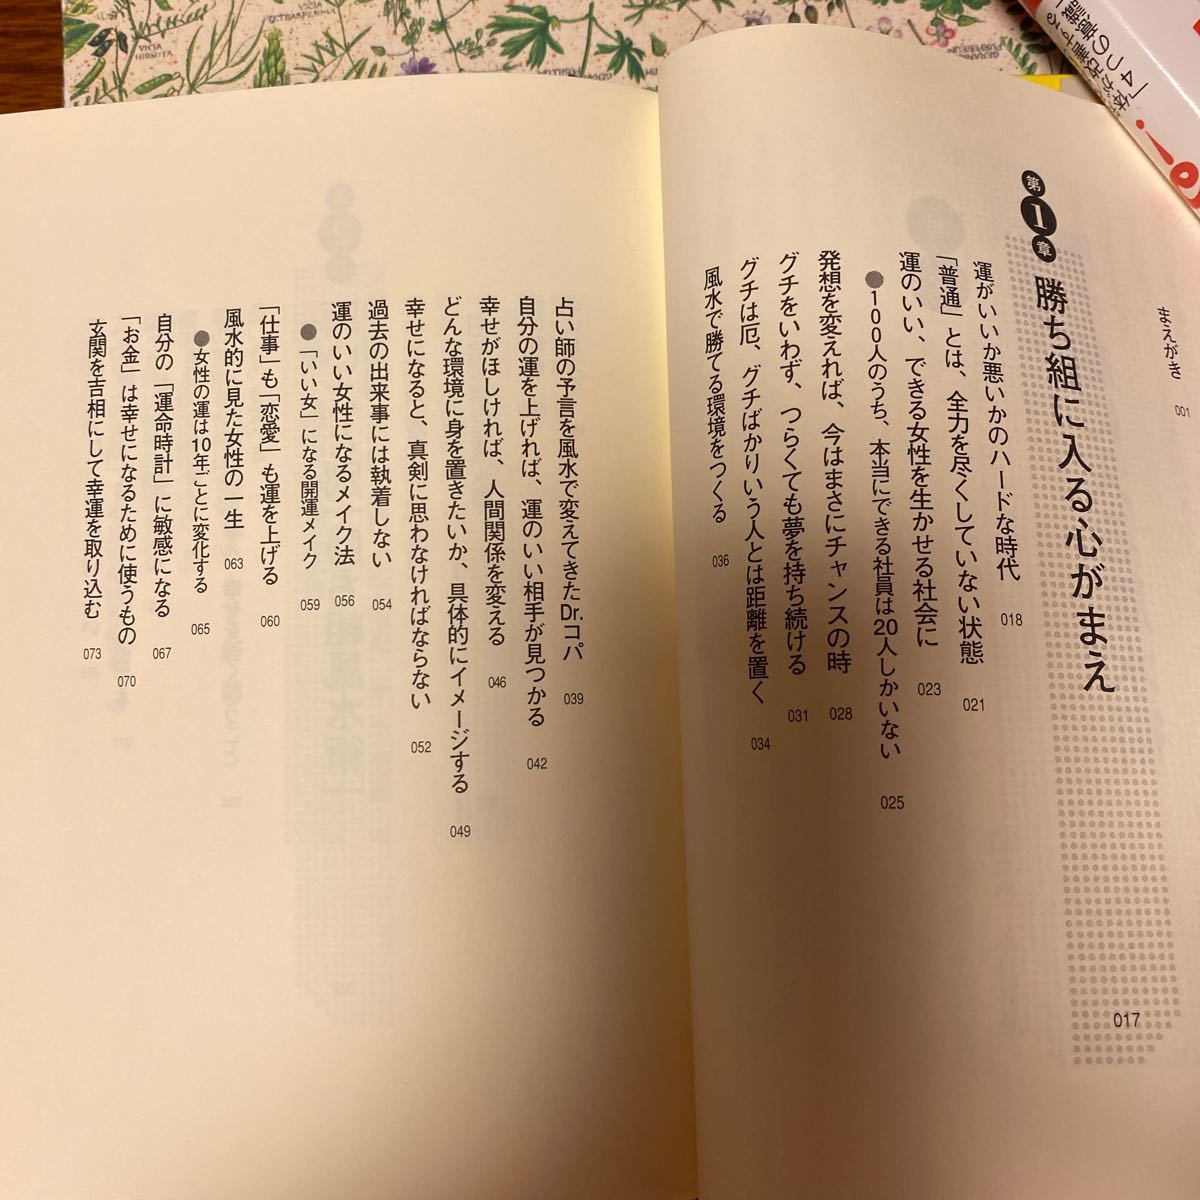 VICIA HIRSUTA
VICIA TETRASPERMA
体が改善する
「4つの意識」
まえがき 001
第1章 勝ち組に入る心がまえ 017
運がいいか悪いかのハードな時代 018
「普通」とは、全力を尽くしていない状態 021
運のいい、できる女性を生かせる社会に 023
●100人のうち、本当にできる社員は20人しかいない 025
発想を変えれば、今はまさにチャンスの時 028
グチをいわず、つらくても夢を持ち続ける 031
グチは厄、グチばかりいう人とは距離を置く 034
風水で勝てる環境をつくる 036
占い師の予言を風水で変えてきたDr.コパ 039
自分の運を上げれば、運のいい相手が見つかる 042
幸せがほしければ、人間関係を変える 046
どんな環境に身を置きたいか、具体的にイメージする 049
幸せになると、真剣に思わなければならない 052
過去の出来事には執着しない 054
運のいい女性になるメイク法 056
●「いい女」になる開運メイク 059
「仕事」も「恋愛」も運を上げる 060
風水的に見た女性の一生 063
●女性の運は10年ごとに変化する 065
自分の「運命時計」に敏感になる 067
「お金」は幸せになるために使うもの 070
玄関を吉相にして幸運を取り込む 073